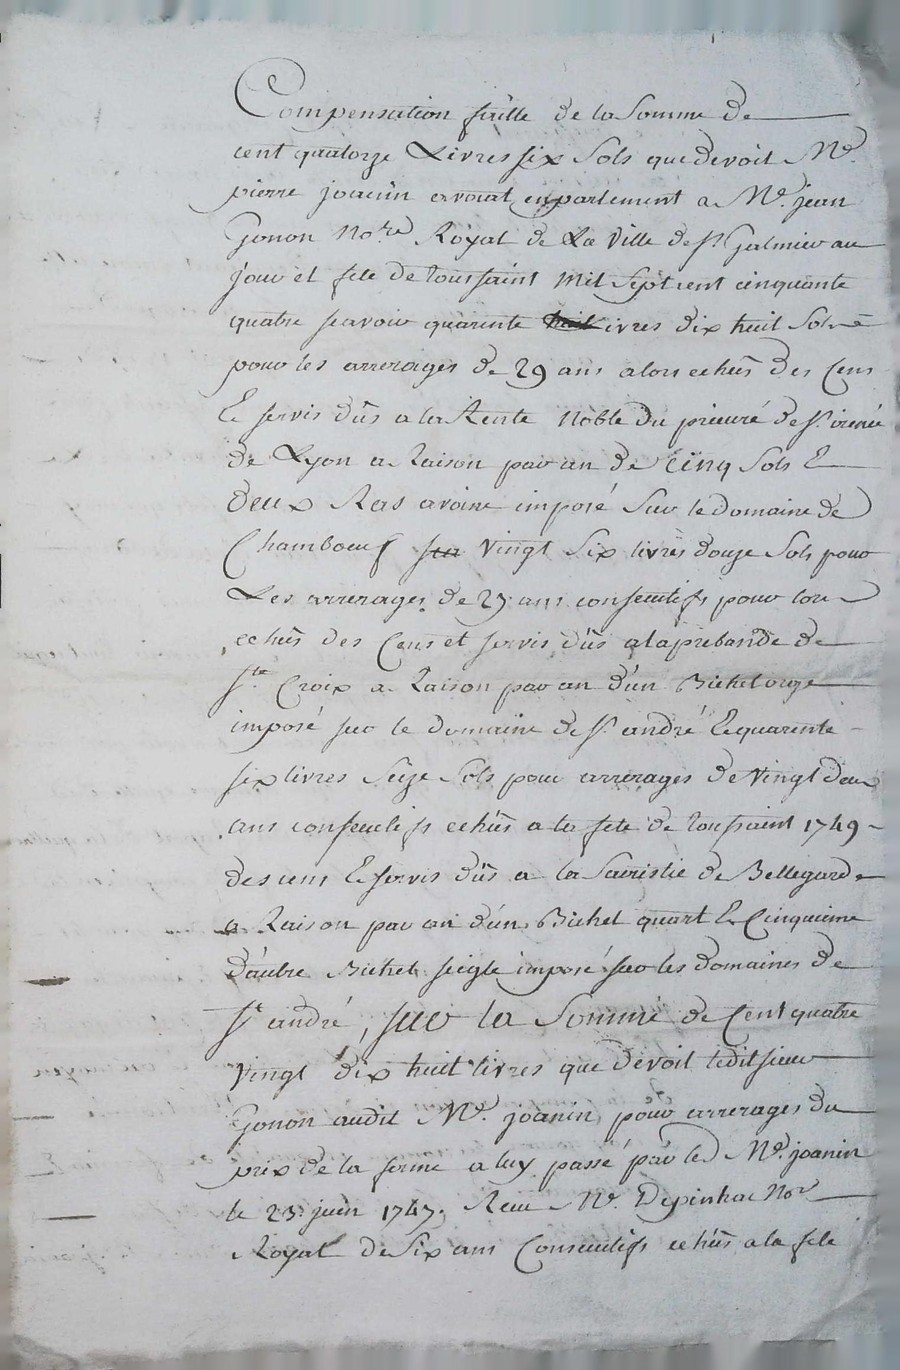 Compensation faitte de la Somme de
cent quatorze Livres six Sols que devoit Me.
pierre joanin avocat en parlement a Me. jean
Gonon No.re Royal de La Ville de st Galmier au
jour et fete de toussaint Mil Sept cent cinquante
quatre scavoir quarente livres dix huit Sols
pour les arrerages de 29 ans alors echûs des Cens
E servis dûs a la Rente Noble du prieuré de st. irenée
de Lyon a Raison par an de Cinq Sols E
deux Ras avoine imposé Sur le domaine de
Chamboeuf sur Vingt Six livres douze Sols pour
Les arrerages de 29 ans consecutifs pour lors
echûs des Cens et servis dûs a la prebande de
ste. Croix a Raison par an d'un Bichet orge
imposé sur le domaine de st. andré E quarente
six livres Seize Sols pour arrerages de Vingt deux
ans consecutifs echûs a la fete de toussaint 1749
des cens E servis dûs a la Sacristie de Bellegarde
a Raison par an d'un Bichet quart E Cinquieme
d'autre Bichet seigle imposé sur les domaines de
st andré, sur la Somme de Cent quatre
Vingt dix huit livres que devoit ledit sieur
Gonon audit Me. joanin pour arrerages du
prix de la ferme a luy passé par led Me. joanin
le 23 juin 1747. Recu Me. Depinhac Nore
Royal de Six ans Consecutifs echûs a la fete